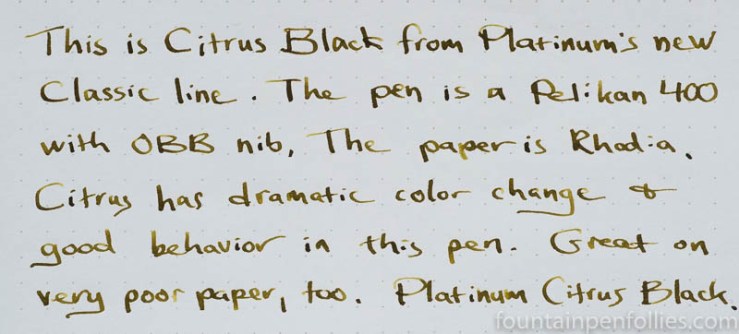 This is Citrus Black from Platinum's new
Classic line. The pen is a Pelikan 400
with OBB nib, The paper is Rhodia.
Citrus has dramatic color change &
good behavior in this pen. Great on
very poor paper, too. Platinum Citrus Black.
fountainpenfollies.com